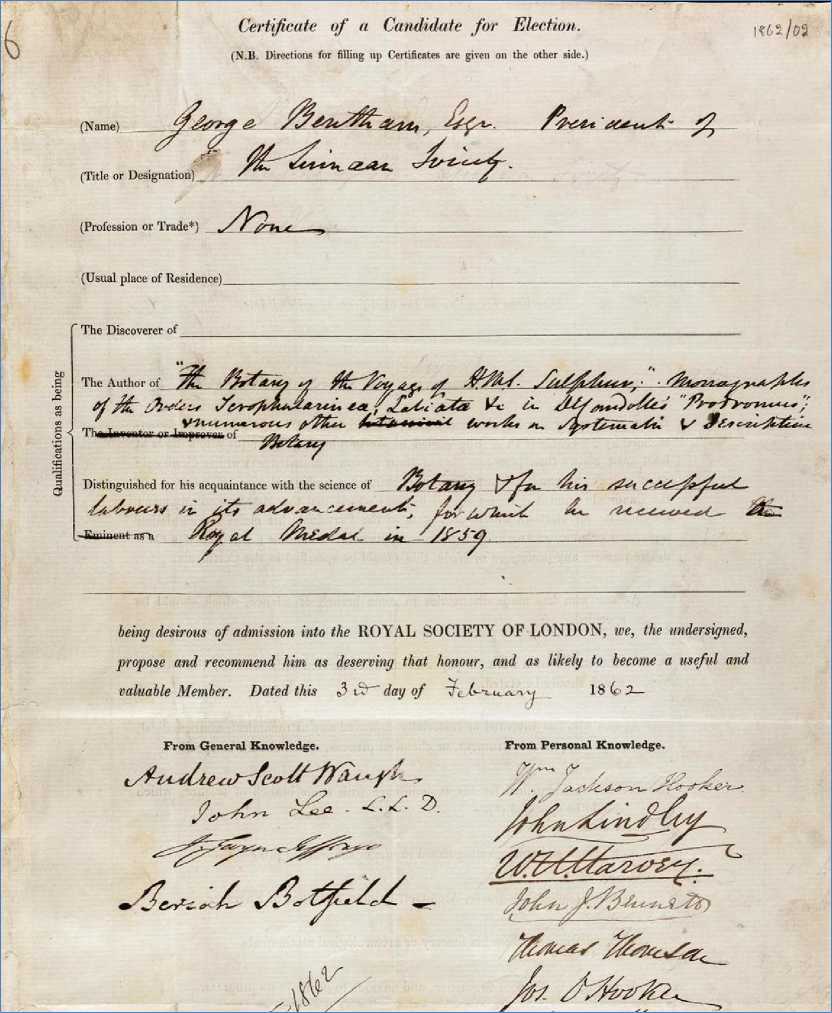 6
Certificate of a Candidate for Election.
1862/02
(N.B. Directions for filling up Certificates are given on the other side.)
(Name) George Bentham, Esqr. President of
(Title or Designation) the Linnean Society.
(Profession or Trade*) None
(Usual place of Residence)
The Discoverer of
Qualifications as being
The Author of "The Botany of the Voyage of H.M.S. Sulphur," Monographs
of the Orders Scrophularineæ, Labiatæ &c in DeCandolle's "Prodromus";
& numerous other botanical works on Systematic & Descriptive
The Inventor or Improver of Botany
Distinguished for his acquaintance with the science of Botany & for his successful
labours in its advancement, for which he received the
Eminent as a Royal Medal in 1859.
being desirous of admission into the ROYAL SOCIETY OF LONDON, we, the undersigned,
propose and recommend him as deserving that honour, and as likely to become a useful and
valuable Member. Dated this 3rd day of February 1862
From General Knowledge.
Andrew Scott Waugh
John Lee. L.L.D.
J. Gwyn Jeffreys
Beriah Botfield
1862
From Personal Knowledge.
Wm Jackson Hooker
John Lindley
W.H. Harvey.
John J. Bennett
Thomas Thomson
Jos. D Hooker